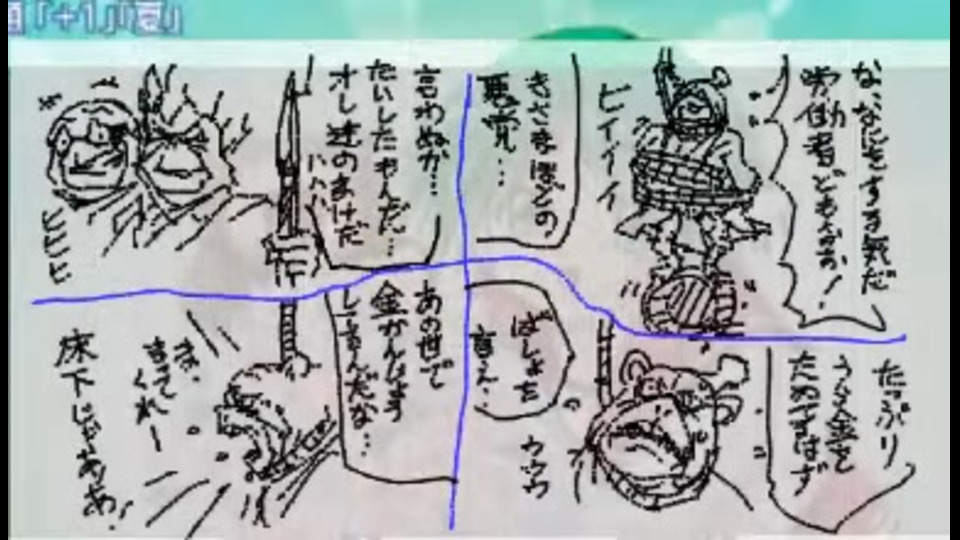 な、なにをする気だ
労働者どもが!
ビイイイ
きさまほどの
悪党…
たっぷり
うら金を
ばしょを
言え…
ウウウ
言わぬか…
たいしたもんだ…
オレ達のまけだ
ハハハ
ヒヒヒ
あの世で
金かんじょう
してるんだな…
ま、
まってくれー
床下じゃああ!